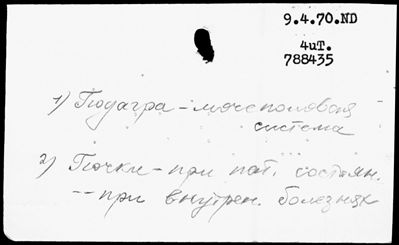 9.4.70.ND
4чт.
788435
1) Подагра – мочеполовая
система
2) Почки – при пат. состоян.
-- при внутрен. болезнях